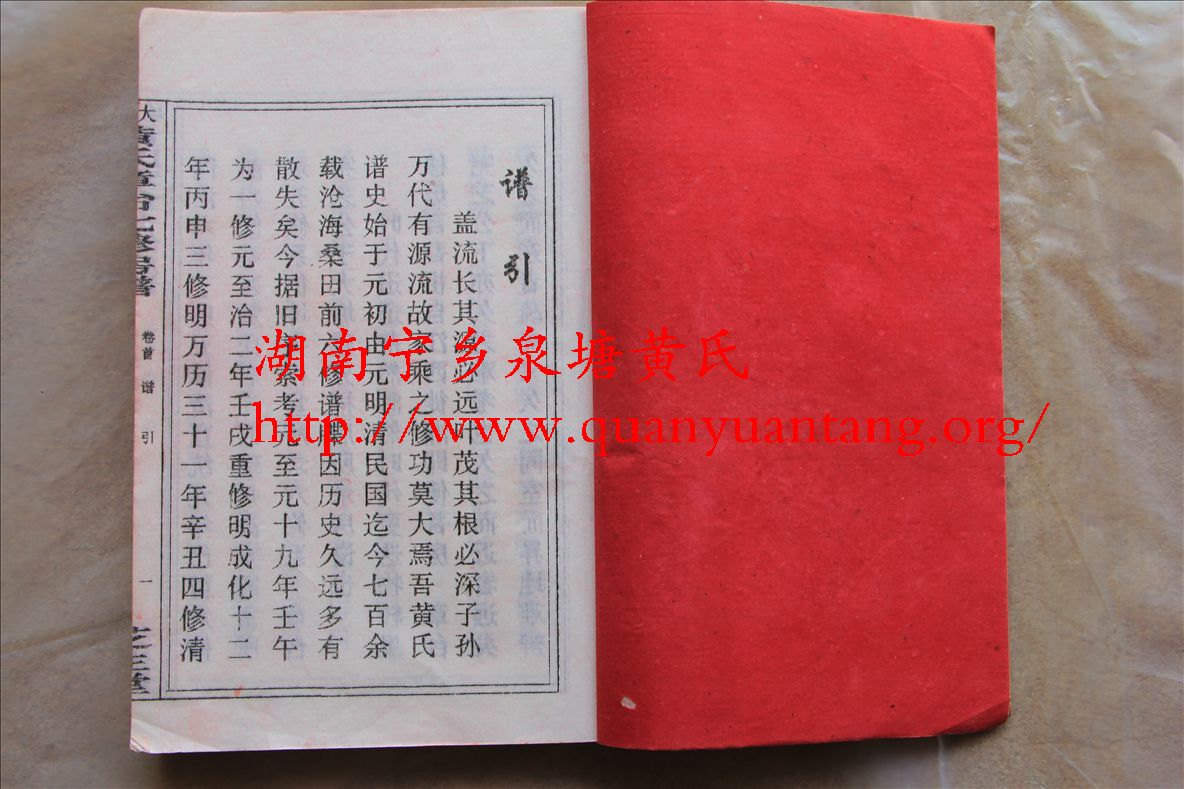 谱引
盖流长其源必远叶茂其根必深子孙
万代有源流故家乘之修功莫大焉吾黄氏
谱史始于元初由元明清民国迄今七百余
载沧海桑田前六修谱牒因历史久远多有
散失矣今据旧序索考元至元十九年壬午
为一修元至治二年壬戌重修明成化十二
年丙申三修明万历三十一年辛丑四修清
卷首 谱引
一
湖南宁乡泉塘黄氏
http://www.quanyuantang.org/